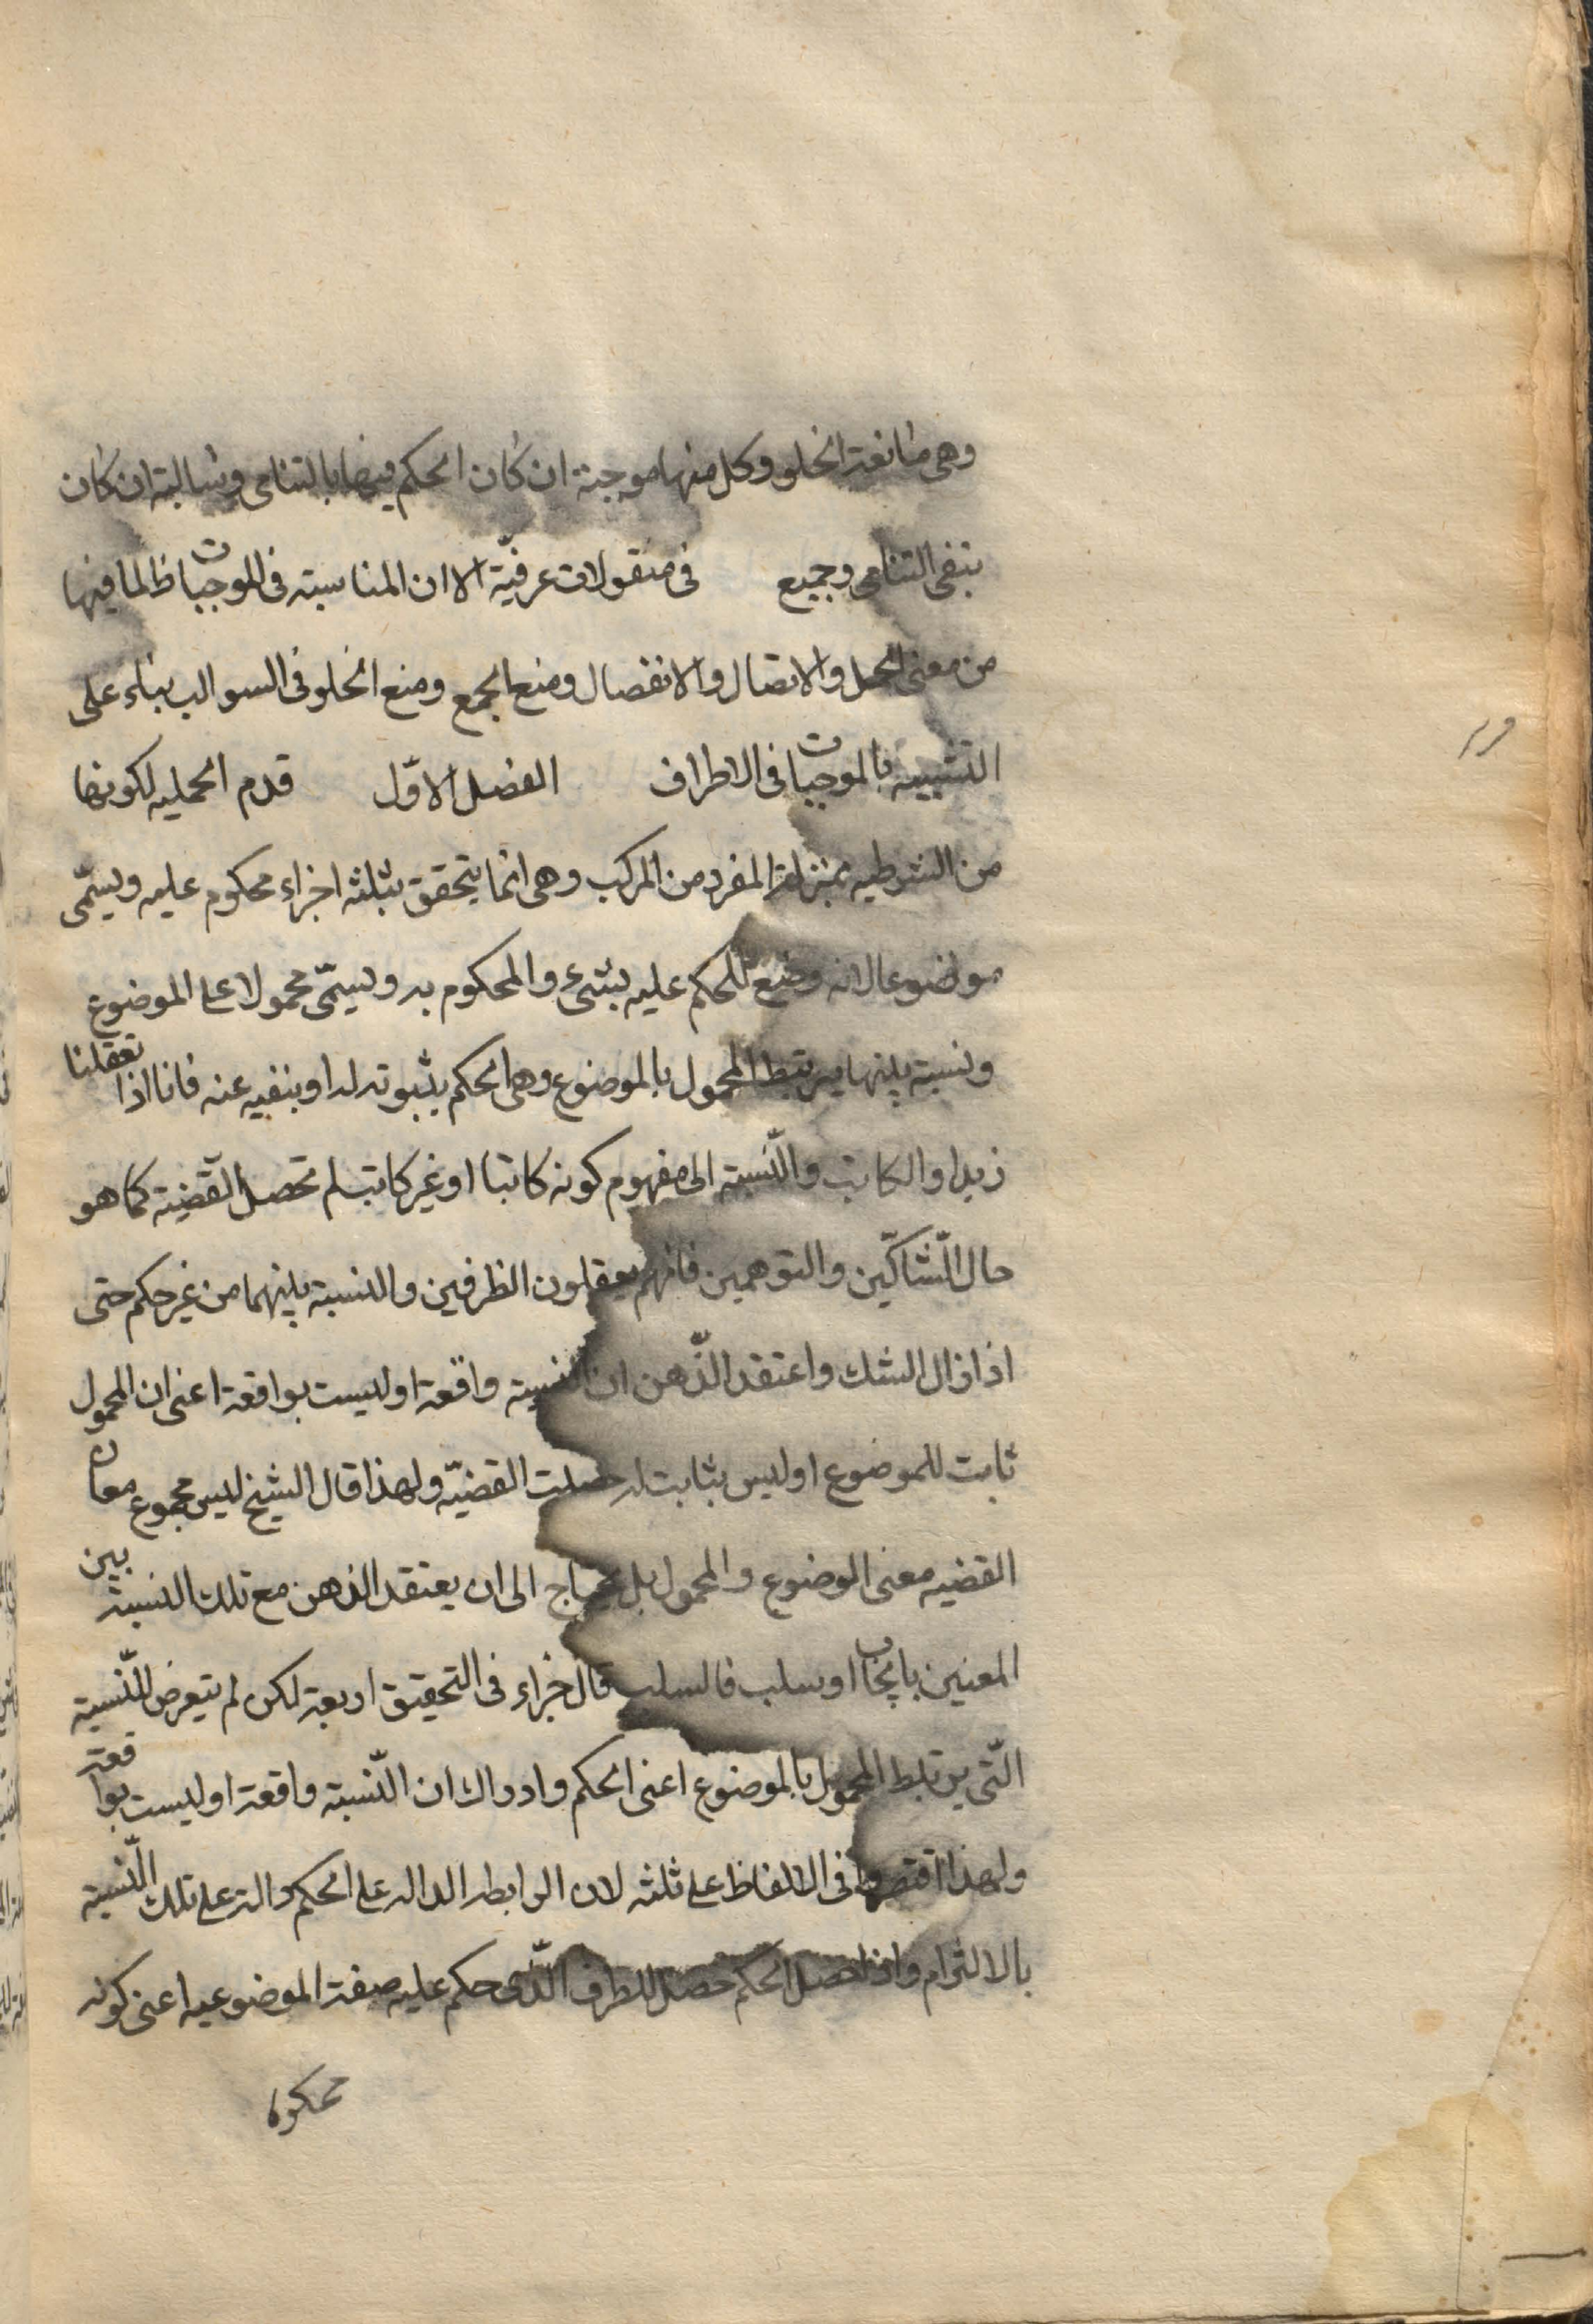 وهى مانعة الخلو وكل منها موجبة ان كان الحكم فيها بالتنافى وسالبة ان كان
بنفى التنافى وجميع فى منقولات عرفيّة الا ان المناسبة فى الموجبات ظ لما فيها
من معنى الحمل والاتصال والانفصال ومنع الجمع ومنع الخلو فى السوالب بناء على
التشبيه بالموجبات فى الاطراف الفصل الاوّل قدم الحمليه لكونها
من الشرطيه بمنزلة المفرد من المركب وهى انما يتحقق بثلثه اجزاء محكوم عليه ويسمّى
موضوعا لانه وضع للحكم عليه بشىء والمحكوم به ويسمّى محمولا على الموضوع
ونسبة بينها يرتبط المحمول بالموضوع وهى الحكم بثبوته له او بنفيه عنه فانا اذا تعقلنا
زيدا والكاتب والنّسبة الى مفهوم كونه كاتبا او غير كاتب لم تحصل القضيّة كما هو
حال الشّاكّين والتوهمين فانهم يعقلون الطرفين والنسبة بينهما من غير حكم حتى
اذا زال الشك واعتقد الذّهن ان النسبة واقعة او ليست بواقعة اعنى ان المحمول
ثابت للموضوع او ليس بثابت له حصلت القضيّة ولهذا قال الشيخ ليس مجموع معان
القضيه معنى الموضوع والمحمول بل يحتاج الى ان يعتقد الذهن مع تلك النسبة بين
المعنين بايجاب او سلب فالسلب قال جزاء فى التحقيق اربعة لكن لم يتعرض للنّسبة
الّتى يرتبط المحمول بالموضوع اعنى الحكم وادراك ان النّسبة واقعة او ليست بواقعة
ولهذا اقتصروا فى الالفاظ على ثلثه لان الرابطه الداله على الحكم دالة على تلك النّسبة
بالالتزام واذا حصل الحكم حصل للطرف الّذى حكم عليه صفة الموضوعيه اعنى كونه
محكوما